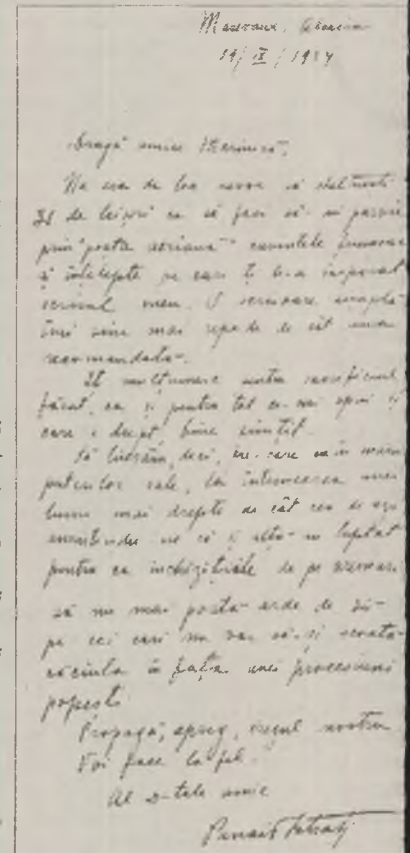 19/IX/1934
Dragă amice
Nu era de loc nevoe să cheltuești
31 de lei pri ca să faci să-mi parvie
prin poșta aeriană cuvintele frumoase
și înțelepte pe cari ți le-a inspirat
scrisul meu. O scrisoare simplă
îmi vine mai repede de cât una
recomandată.
Îți mulțumesc pentru sacrificiul
făcut, ca și pentru tot ce-mi spui și
care e drept, bine simțit.
Să lucrăm, deci, fie-care în marginea
puterilor sale, la întemeerea unei
lumi mai drepte de cât cea de azi
că și alții au luptat
pentru ca inchizițiile de pe vremuri
să nu mai poată arde de vii
pe cei cari nu vor să-și scoată
căciula în fața unei procesiuni
popești.
Propagă, aprig, crezul nostru
Voi face la fel.
Al d-tale amic
Panait Istrati